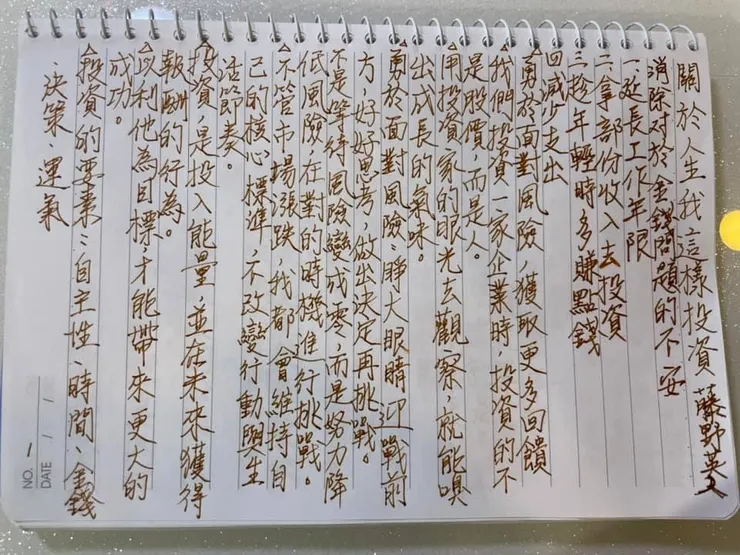 關於人生我這樣投資 藤野英人
消除对於金錢問題的不安
一、延長工作年限
二、拿部份收入去投資
三、趁年輕時多賺點錢
四、減少支出
△勇於面對風險，獲取更多回饋
△我們投資一家企業時，投資的不
是股價，而是人。
△用投資家的眼光去觀察，就能嗅
出成長的氣味。
△勇於面對風險：睜大眼睛迎戰前
方，好好思考，做出決定再挑戰。
不是等待風險變成零，而是努力降
低風險，在對的時機進行挑戰。
△不管市場漲跌，我都會維持自
己的核心標準，不改變行動與生
活節奏。
△投資，是投入能量，並在未來獲得
報酬的行為。
△以利他為目標，才能帶來更大的
成功。
△投資的要素：自主性、時間、金錢
、決策、運氣
NO. 1
DATE / /